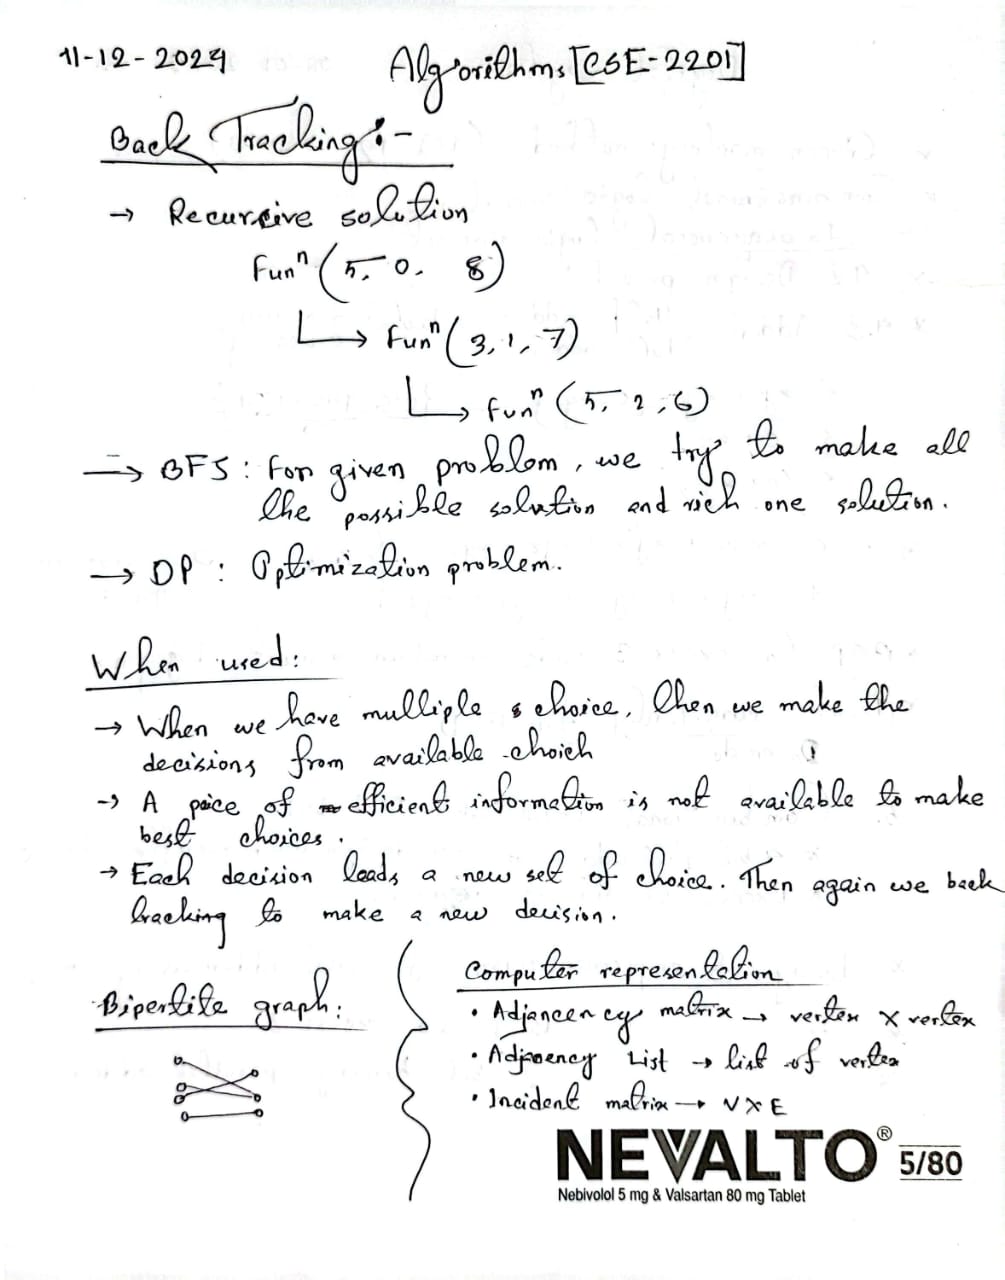 11-12-2024 Algorithms [CSE-2201]
Back Tracking:-
→ Recursive solution
Funⁿ (5, 0, 8)
↳ Funⁿ (3, 1, 7)
↳ Funⁿ (5, 2, 6)
→ BFS : For given problem, we try to make all
the possible solution and rich one solution.
→ DP : Optimization problem.
When used:
→ When we have multiple choice, then we make the
decisions from available choich
→ A paice of efficient information is not available to make
best choices.
→ Each decision leads a new set of choice. Then again we back
tracking to make a new decision.
Bipertite graph:
Computer representation
• Adjancency matrix → vertex X vertex
• Adjacency List → list of vertex
• Incident matrix → V X E
NEVALTO® 5/80
Nebivolol 5 mg & Valsartan 80 mg Tablet